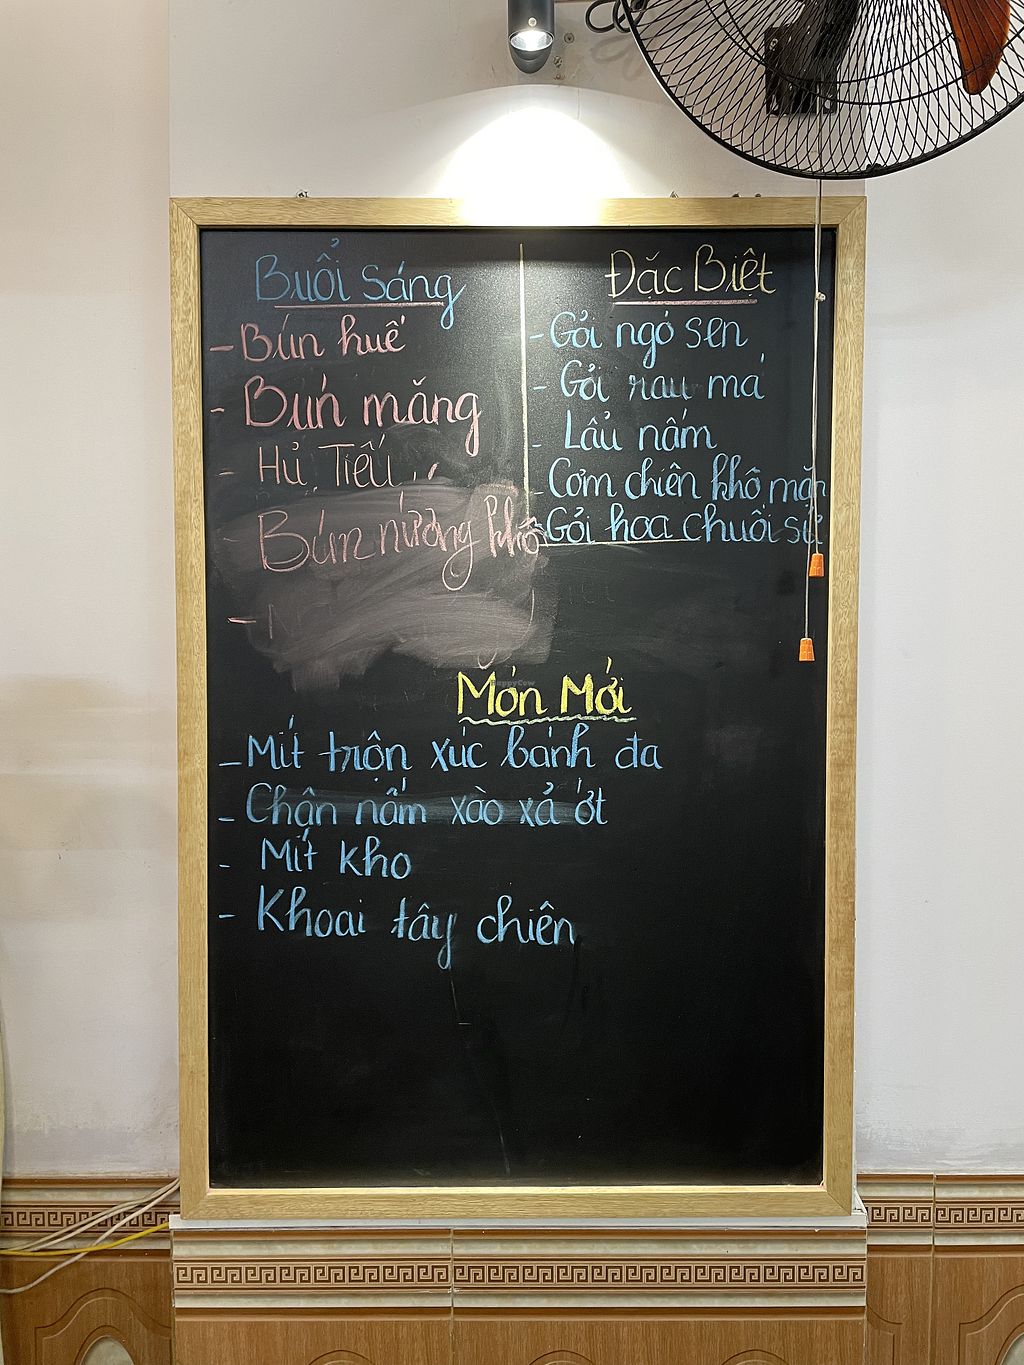 Buổi Sáng
- Bún huế
- Bún măng
- Hủ Tiếu
- Bún nướng khô
Đặc Biệt
- Gỏi ngó sen
- Gỏi rau má
- Lẩu nấm
- Cơm chiên khô mặn
- Gỏi hoa chuối sứ
HappyCow
Món Mới
- Mít trộn xúc bánh đa
- Chân nấm xào xả ớt
- Mít kho
- Khoai tây chiên